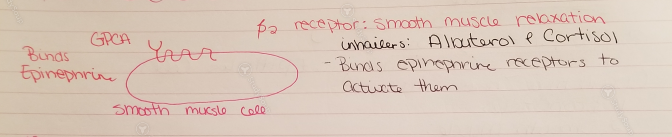 β2 receptor: smooth muscle relaxation
inhailers: Albuterol & Cortisol
- Binds epinephrine receptors to
activate them
GPCA
Binds
Epinephrine
smooth muscle cell